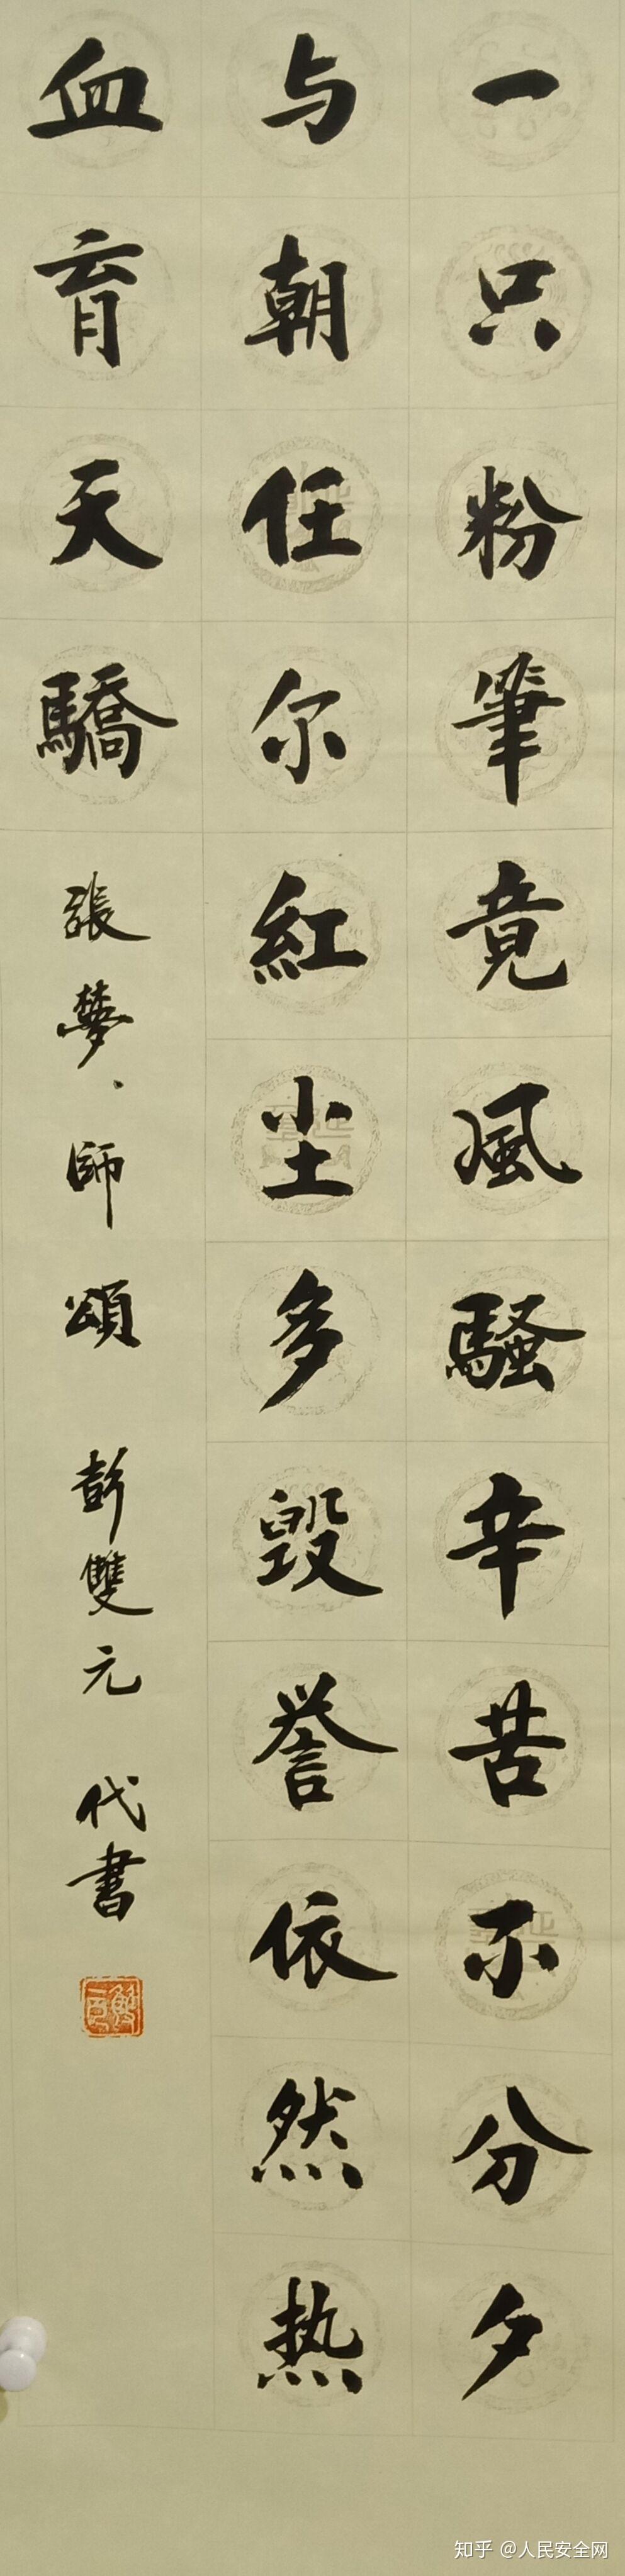 一只粉筆竟風騷辛苦不分夕
与朝任尔紅尘多毁誉依然热
血育天驕
張夢、師頌 彭雙元 代書
知乎 @人民安全网